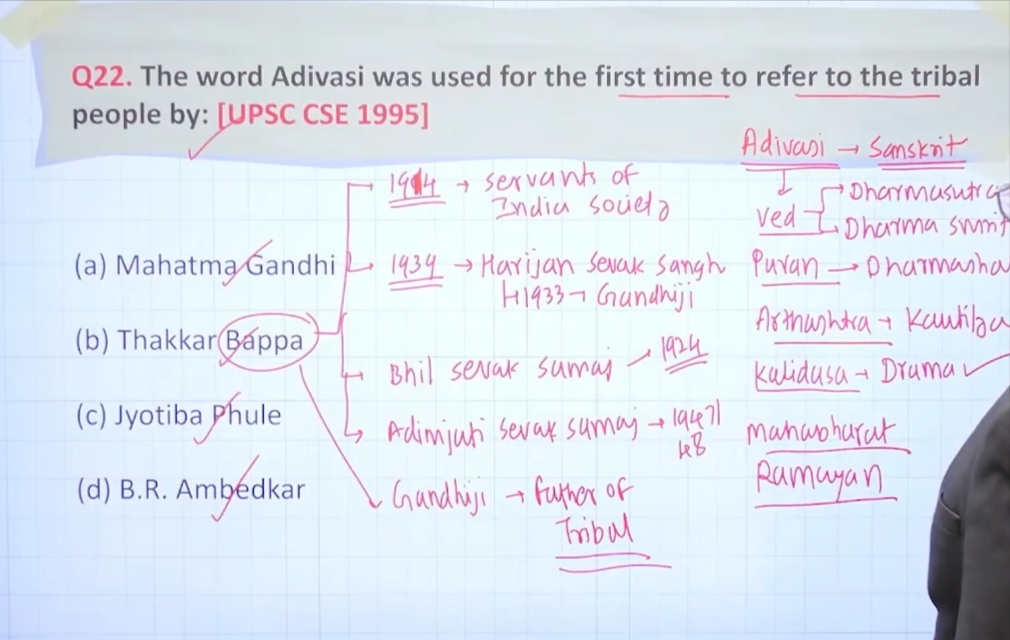 Q22. The word Adivasi was used for the first time to refer to the tribal
people by: [UPSC CSE 1995]
(a) Mahatma Gandhi
(b) Thakkar Bappa
(c) Jyotiba Phule
(d) B.R. Ambedkar
1914 → servants of
India society
1934 → Harijan sevak sangh
1933 → Gandhiji
Bhil sevak samaj 1924
Adimjati sevak samaj → 1947/
48
Gandhiji → father of
Tribal
Adivasi → Sanskrit
Ved Dharmasutra
Dharma smri
Puran → Dharmasha
Arthashtra → Kautilya
Kalidasa → Drama
Mahabharat
Ramayan